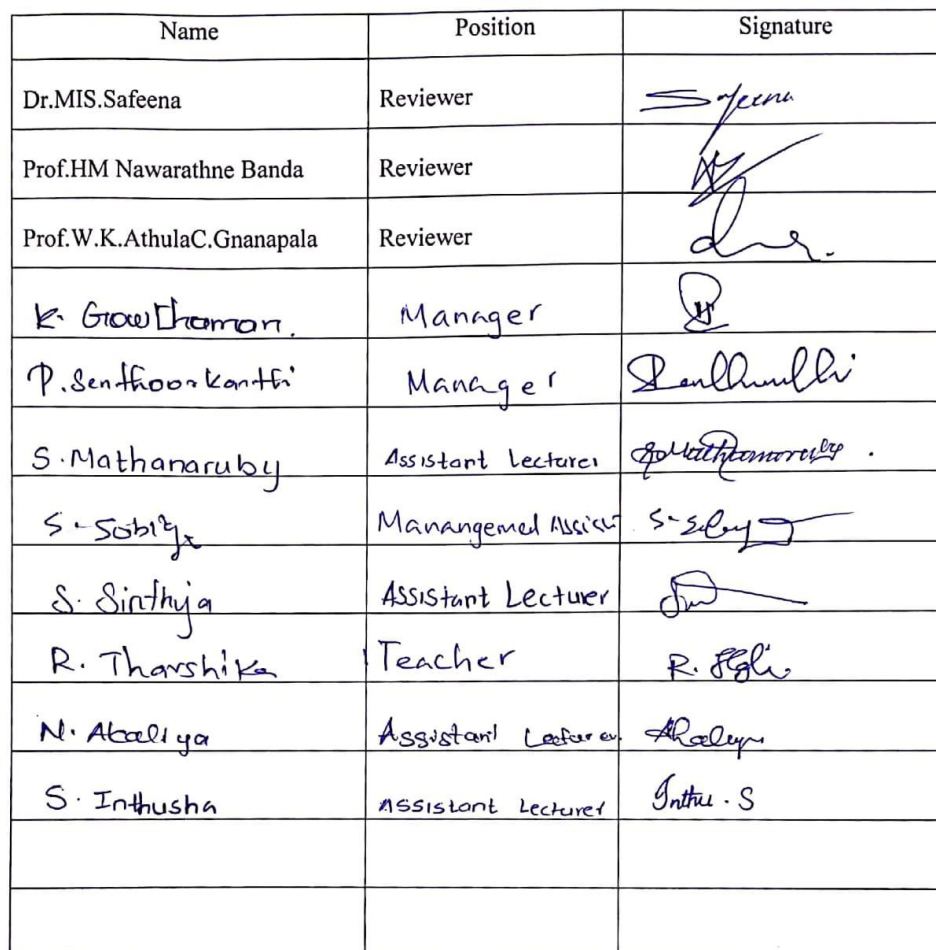 Name Position Signature
Dr.MIS.Safeena Reviewer Safeena
Prof.HM Nawarathne Banda Reviewer
Prof.W.K.AthulaC.Gnanapala Reviewer
K. Gowthaman. Manager
P. Senthoorkanthi Manager
S. Mathanaruby Assistant Lecturer
S. Sobiya Manangemed Assist
S. Sinthuja Assistant Lecturer
R. Tharshika Teacher R.
N. Akaliya Assistant Lecturer
S. Inthusha Assistant Lecturer Inthu . S